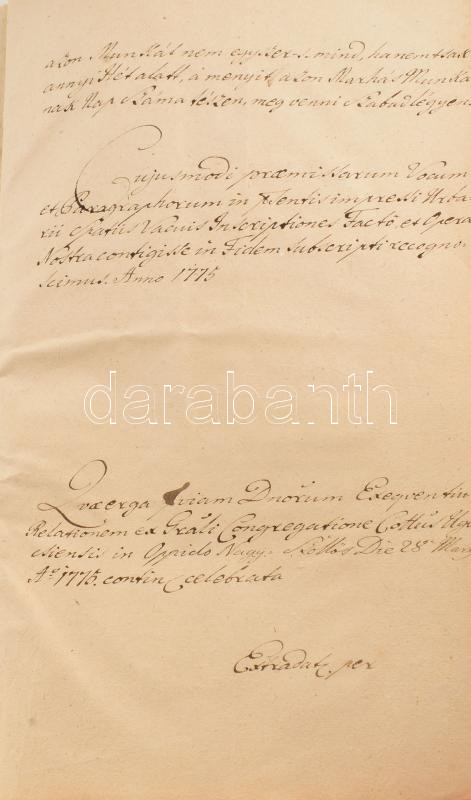 azon Munkát nem egyszersmind, hanem csak
annyi Hét alatt, a menyit azon Marhás Munká
nak Nap száma tészen, meg venni szabad légyen.
Cujusmodi præmissarum Vocum
et Paragraphorum in impressi Urba
rii Spatiis Vacuis Inscriptiones Facto, et Opera
Nostra contigisse in Fidem subscripti recogno
scimus. Anno 1775
darabanth
Quæ erga Dnorum Exeqventiu
Relationem ex Grâli Congregatione Cottus Ugo
csiensis in Oppido Nagy-Szöllös Die 28a Marty
Ao 1775. contin celebrata
Extradat. per